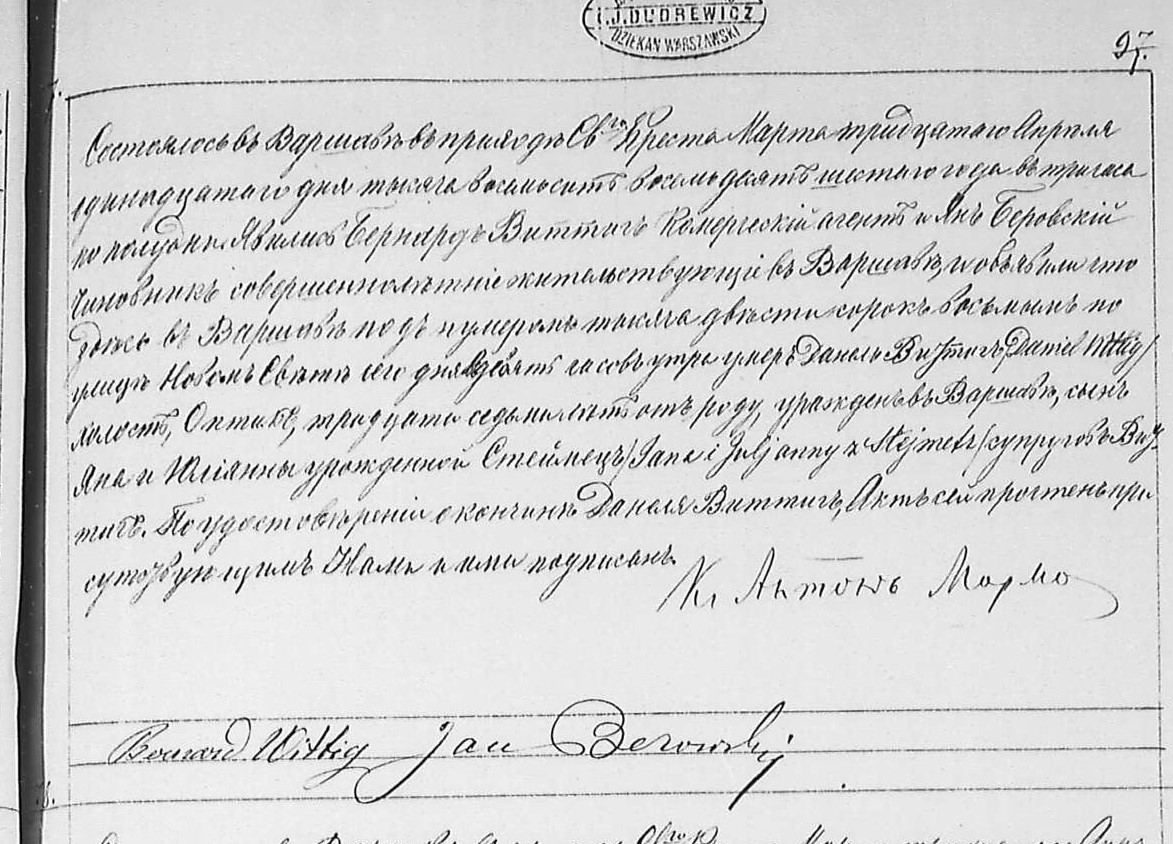 I.J.DUDREWICZ
DZIEKAN WARSZAWSKI
97.
Состоялось въ Варшавѣ въ приходѣ Свго Креста Марта тридцатаго Апрѣля
одинадцатаго дня тысяча восемьсотъ восемьдесятъ шестаго года въ три часа
по полудни. Явились Бернардъ Виттигъ Комерческій агентъ и Янъ Беровскій
чиновникъ совершеннолѣтніе жительствующіе въ Варшавѣ, и объявили что
здѣсь въ Варшавѣ подъ нумеромъ тысяча двѣсти сорокъ восьмымъ по
улицѣ Новомъ Свѣтѣ сего дня въ часовъ утра умеръ Даніель Виттигъ /Daniel Wittig/
холостъ, Оптикъ, тридцати седьми лѣтъ отъ роду, урожденъ въ Варшавѣ, сынъ
Яна и Юліянны урожденной Стеймецъ /Jana i Juljanny z Stejmetz/ супруговъ Вит-
тигъ. По удостовѣреніи о кончинѣ Даніеля Виттигъ, Актъ сей прочтенъ при
сутствующимъ Нами и ими подписанъ.
Кс Антонъ Мормо
Bernard Wittig Jan Berowski